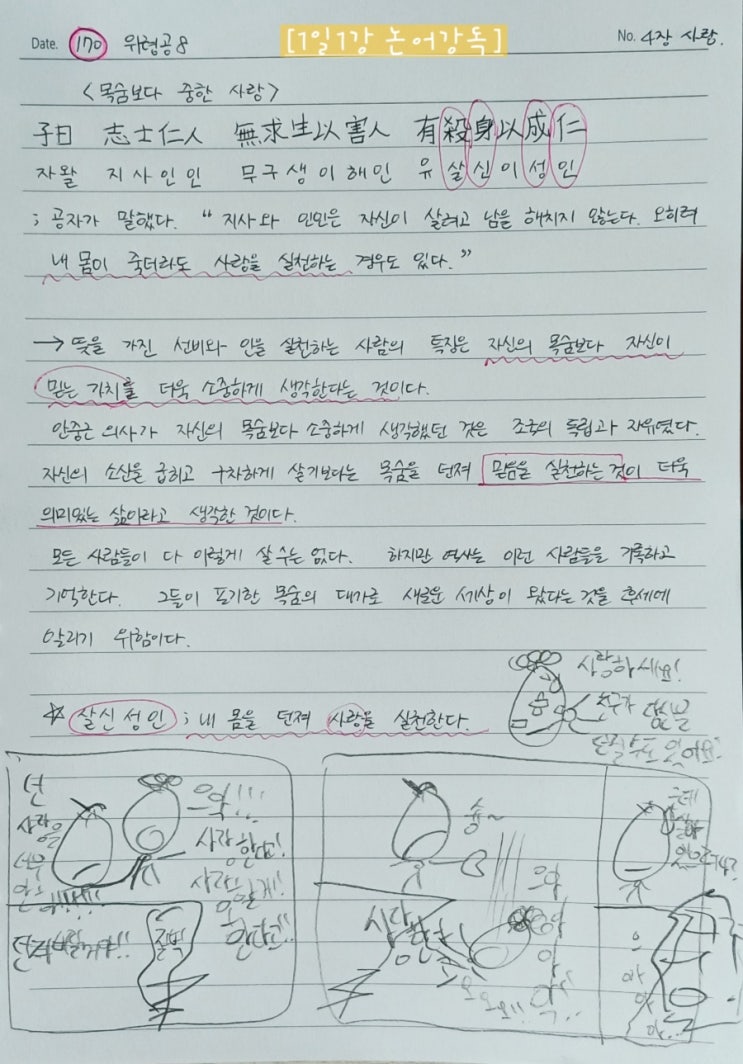 Date. 170 위령공 8 [1일1강 논어강독] No. 4장 사랑.
<목숨보다 중한 사랑>
子曰 志士仁人 無求生以害人 有殺身以成仁
자왈 지사인인 무구생이해인 유살신이성인
; 공자가 말했다. "지사와 인인은 자신이 살려고 남을 해치지 않는다. 오히려
내 몸이 죽더라도 사랑을 실천하는 경우도 있다."
→ 뜻을 가진 선비와 인을 실천하는 사람의 특징은 자신의 목숨보다 자신이
믿는 가치를 더욱 소중하게 생각한다는 것이다.
안중근 의사가 자신의 목숨보다 소중하게 생각했던 것은 조국의 독립과 자유였다.
자신의 소신을 굽히고 구차하게 살기보다는 목숨을 던져 믿음을 실천하는 것이 더욱
의미있는 삶이라고 생각한 것이다.
모든 사람들이 다 이렇게 살 수는 없다. 하지만 역사는 이런 사람들을 기록하고
기억한다. 그들이 포기한 목숨의 대가로 새로운 세상이 왔다는 것을 후세에
알리기 위함이다.
사랑하세요!
☆ 살신성인 ; 내 몸을 던져 사랑을 실천한다.
친구가
던질수도 있어요!
넌
사랑을
너무
으악!!!
사랑한다고!
사랑
한다고!!
절벽
슝~
으악
사랑한
으
아
아
아..